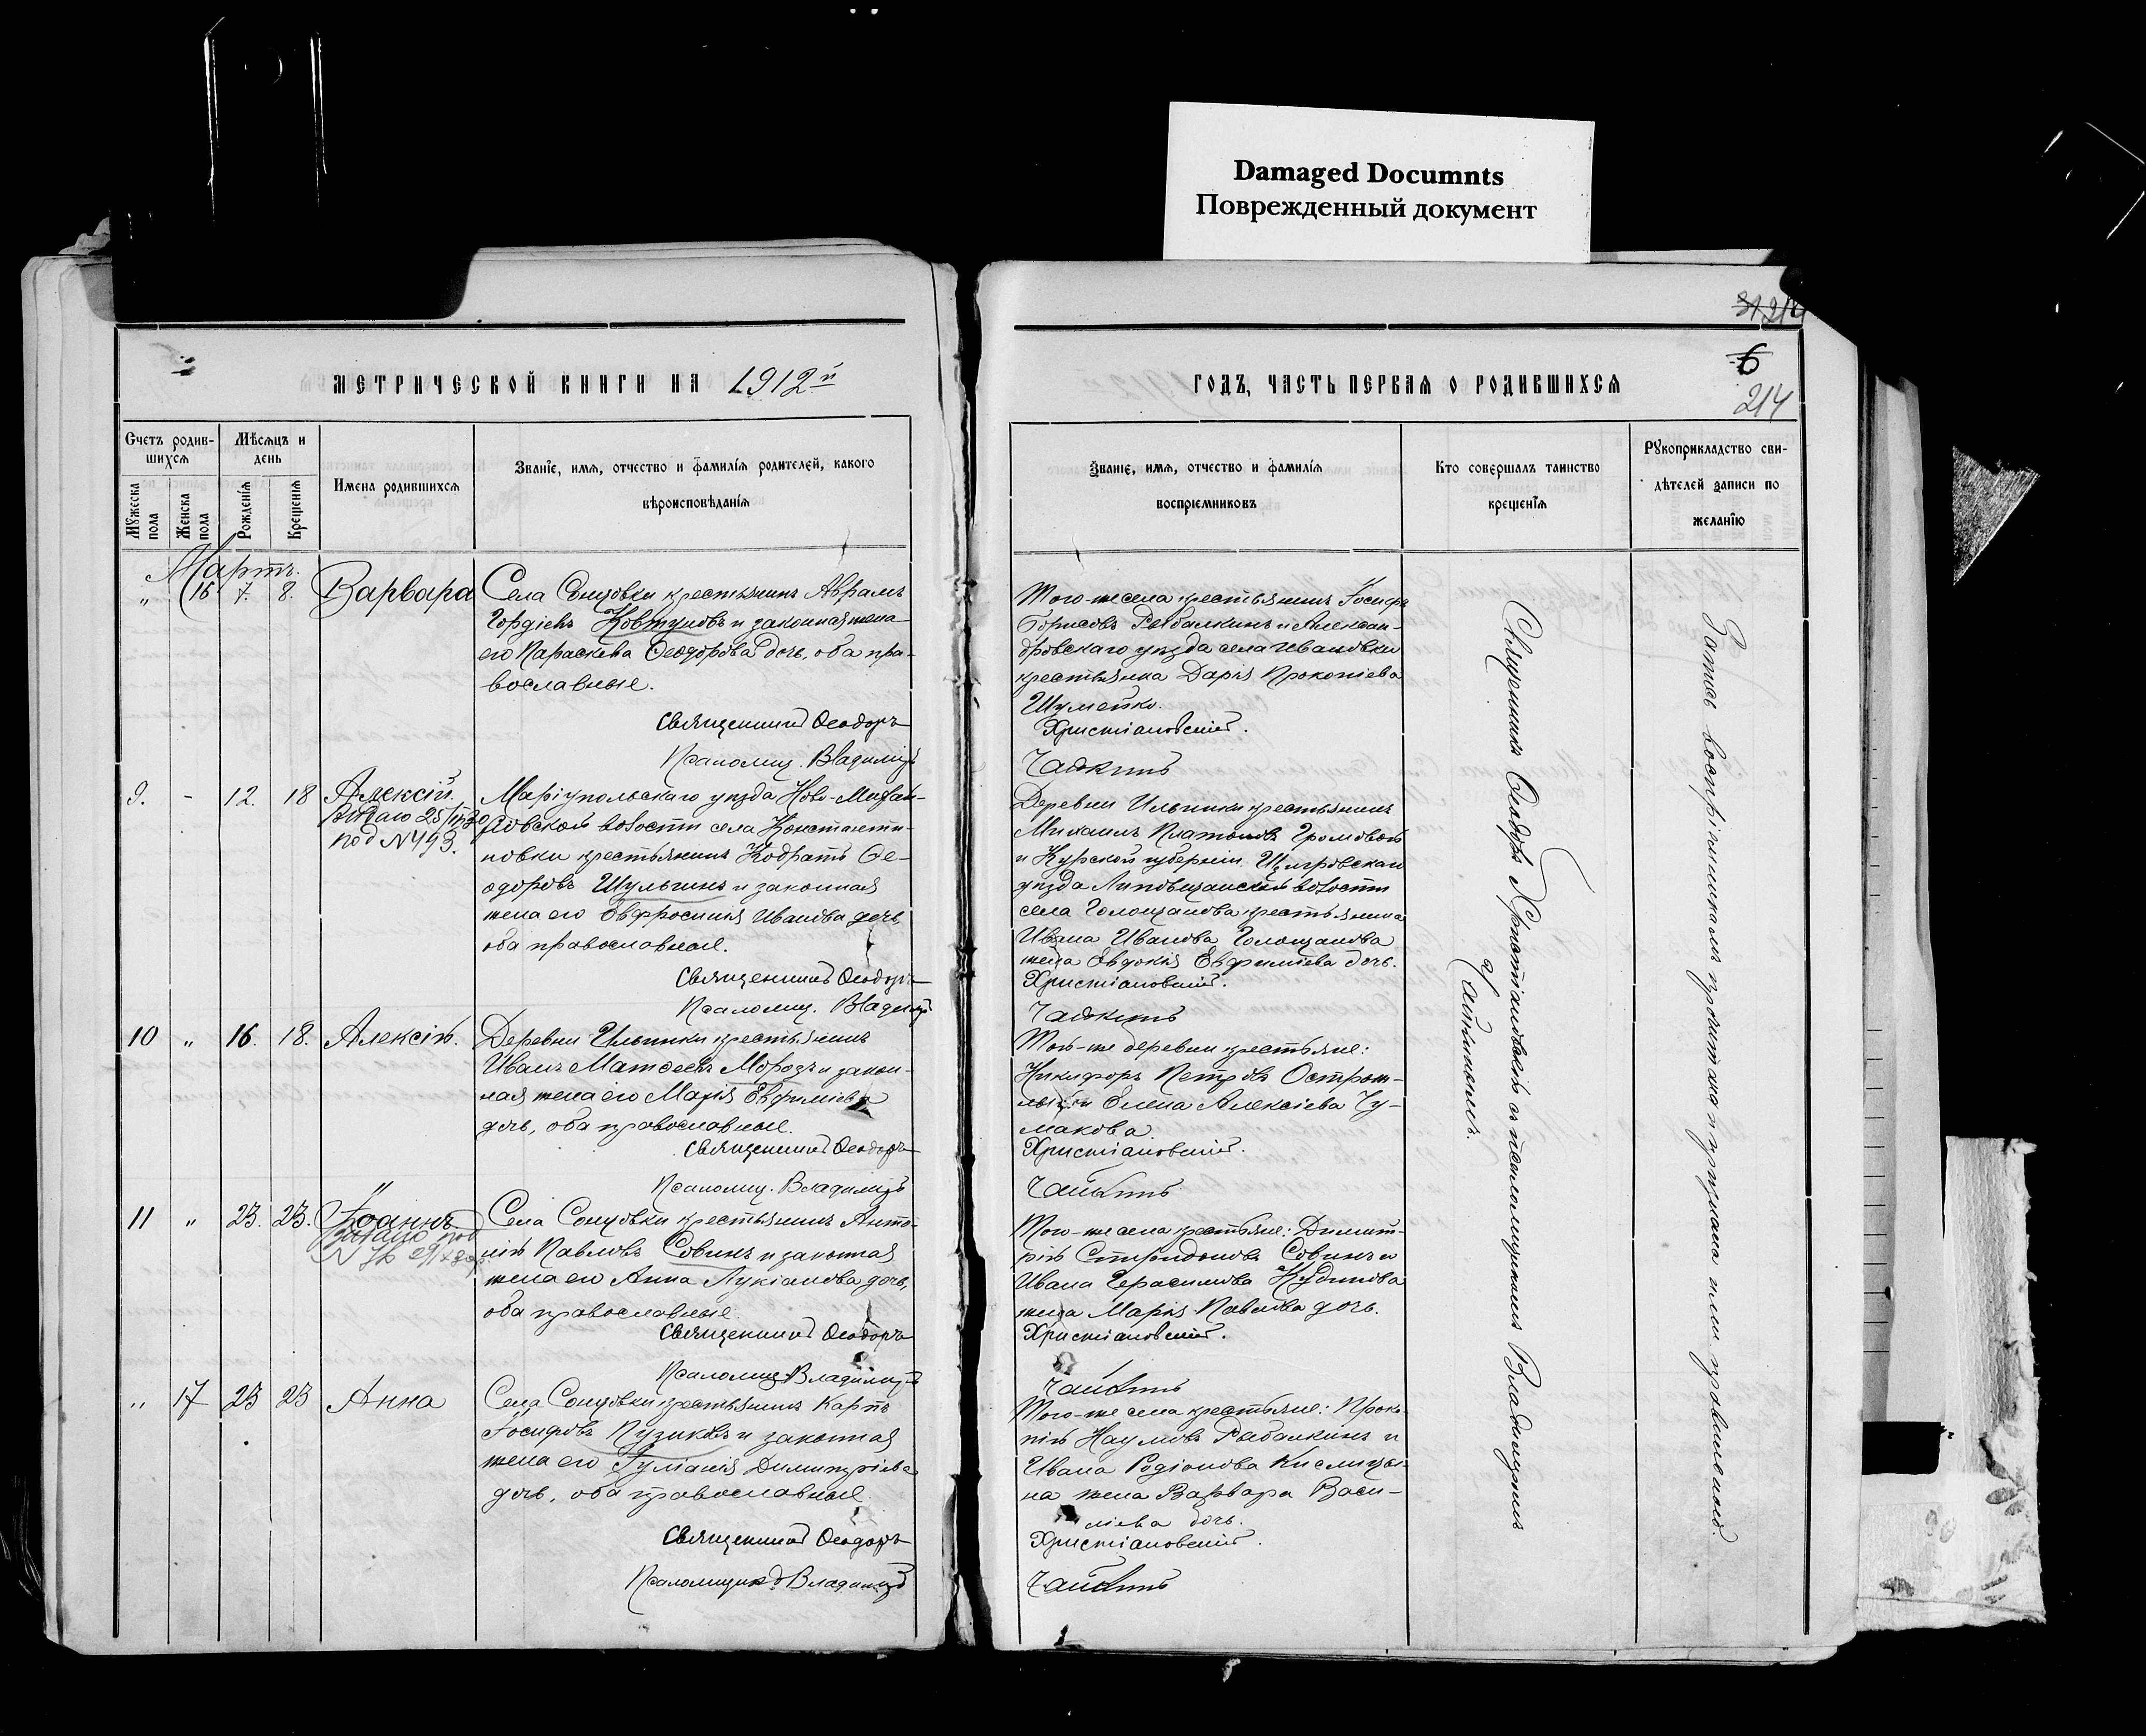 Damaged Documnts
Поврежденный документ
214
6
214
МЕТРИЧЕСКОЙ КНИГИ НА 1912й
ГОДЪ, ЧАСТЬ ПЕРВАЯ О РОДИВШИХСЯ
Счетъ родив-
шихся
Мѣсяцъ и
день
Мужеска
пола
Женска
пола
Рожденія
Крещенія
Имена родившихся
Званіе, имя, отчество и фамилія родителей, какого
вѣроисповѣданія
Званіе, имя, отчество и фамилія
воспріемниковъ
Кто совершалъ таинство
крещенія
Рукоприкладство сви-
дѣтелей записи по
желанію
Мартъ.
„ 16 7. 8. Варвара
Села Сонцовки крестьянинъ Аврамъ
Гордіевъ Ковтуновъ и законная жена
его Параскева Ѳеодорова дочь, оба пра-
вославные.
Священникъ Ѳеодоръ
Псаломщ. Владиміръ
Того-же села крестьянинъ Іосифъ
Борисовъ Рыбалкинъ и Алексан-
дровскаго уѣзда села Ивановки
крестьянка Дарія Прокопіева
Шумейко.
Христіановскій.
Чайкинъ
9. - 12. 18 Алексій
под N 493.
Маріупольскаго уѣзда Ново-
волости села Константи-
новки крестьянинъ Кодратъ Ѳе-
одоровъ Шульгинъ и законная
жена его Евфросинія Иванова дочь,
оба православные.
Священникъ Ѳеодоръ
Псаломщ. Владиміръ
Деревни Ильинки крестьянинъ
Михаилъ Платоновъ Громовой
и Курской губерніи Щигровскаго
уѣзда волости
села Голощапова крестьянина
Ивана Иванова Голощапова
жена Евдокія Евфиміева дочь.
Христіановскій.
Чайкинъ
10 „ 16. 18. Алексій.
Деревни Ильинки крестьянинъ
Иванъ Матѳеевъ Морозъ и закон-
ная жена его Марія Евфиміева
дочь, оба православные.
Священникъ Ѳеодоръ
Псаломщ. Владиміръ
Той-же деревни крестьяне:
Никифоръ Петровъ
и Елена Алексіева Чу-
макова.
Христіановскій.
Чайкинъ
11 „ 23. 23. Іоаннъ
Села Сонцовки крестьянинъ Анто-
ній Павловъ Совинъ и законная
жена его Анна Лукіанова дочь,
оба православные.
Священникъ Ѳеодоръ
Псаломщ. Владиміръ
Того-же села крестьяне: Димит-
рій Спиридоновъ Совинъ и
Ивана Герасимова Кудинова
жена Марія Павлова дочь.
Христіановскій.
Чайкинъ
„ 17 23 23 Анна
Села Сонцовки крестьянинъ Карпъ
Іосифовъ Пузиковъ и законная
жена его Іуліанія Димитріева
дочь, оба православные.
Священникъ Ѳеодоръ
Псаломщикъ Владиміръ
Того-же села крестьяне: Проко-
пій Наумовъ Рыбалкинъ и
Ивана Родіонова Кислицы-
на жена Варвара Васи-
ліева дочь.
Христіановскій.
Чайкинъ
Священникъ Ѳеодоръ Христіановскій съ псаломщикомъ Владиміромъ
Чайкинымъ.